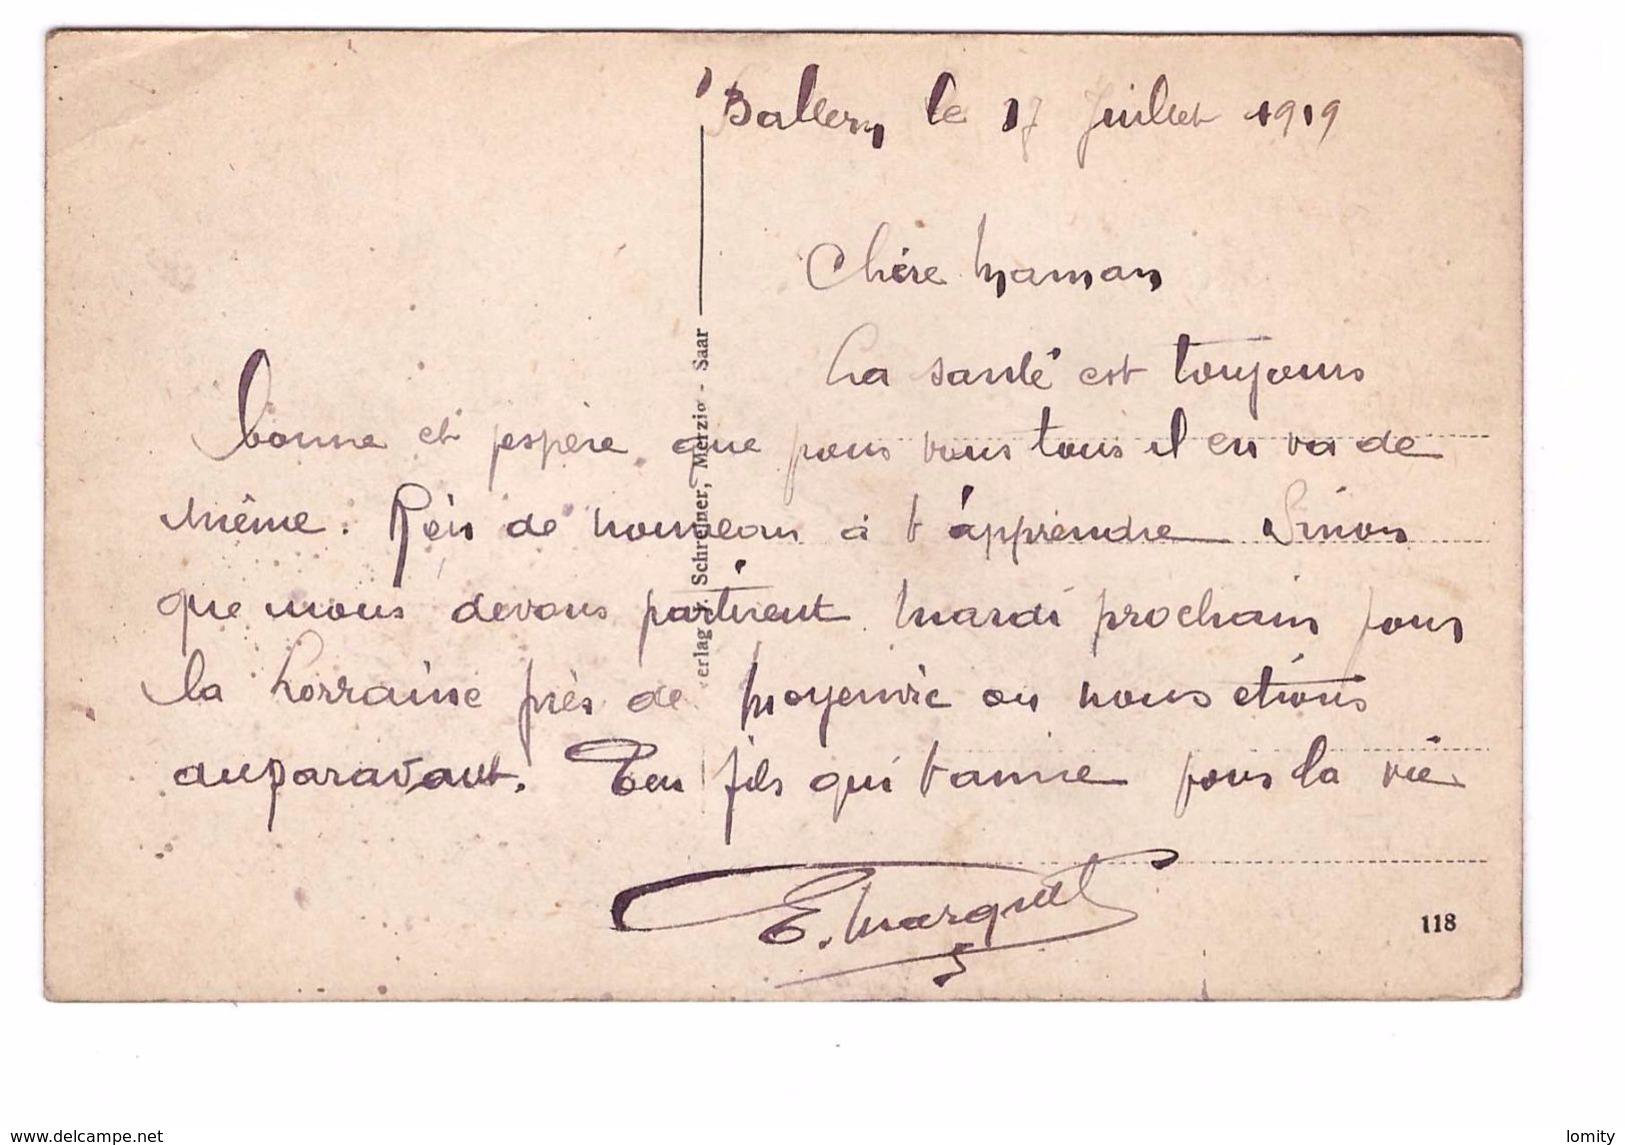 Ballern le 17 Juillet 1919
Chère Maman
La santé est toujours
bonne et j'espère que pour vous tous il en va de
même. Rein de nouveau à t'apprendre Sinon
que nous devons partirent Mardi prochain pour
la Lorraine près de Moyenvic ou nous etions
auparavant. Ton fils qui t'aime pour la vie
E. Marquet
erlag v. J. Schreiner, Merzig - Saar
118
www.delcampe.net
lomity